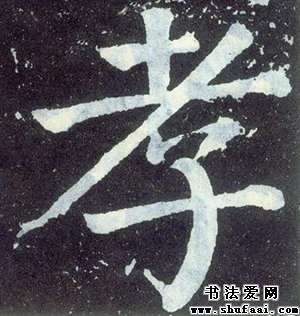 孝
书法爱网
www.shufaai.com